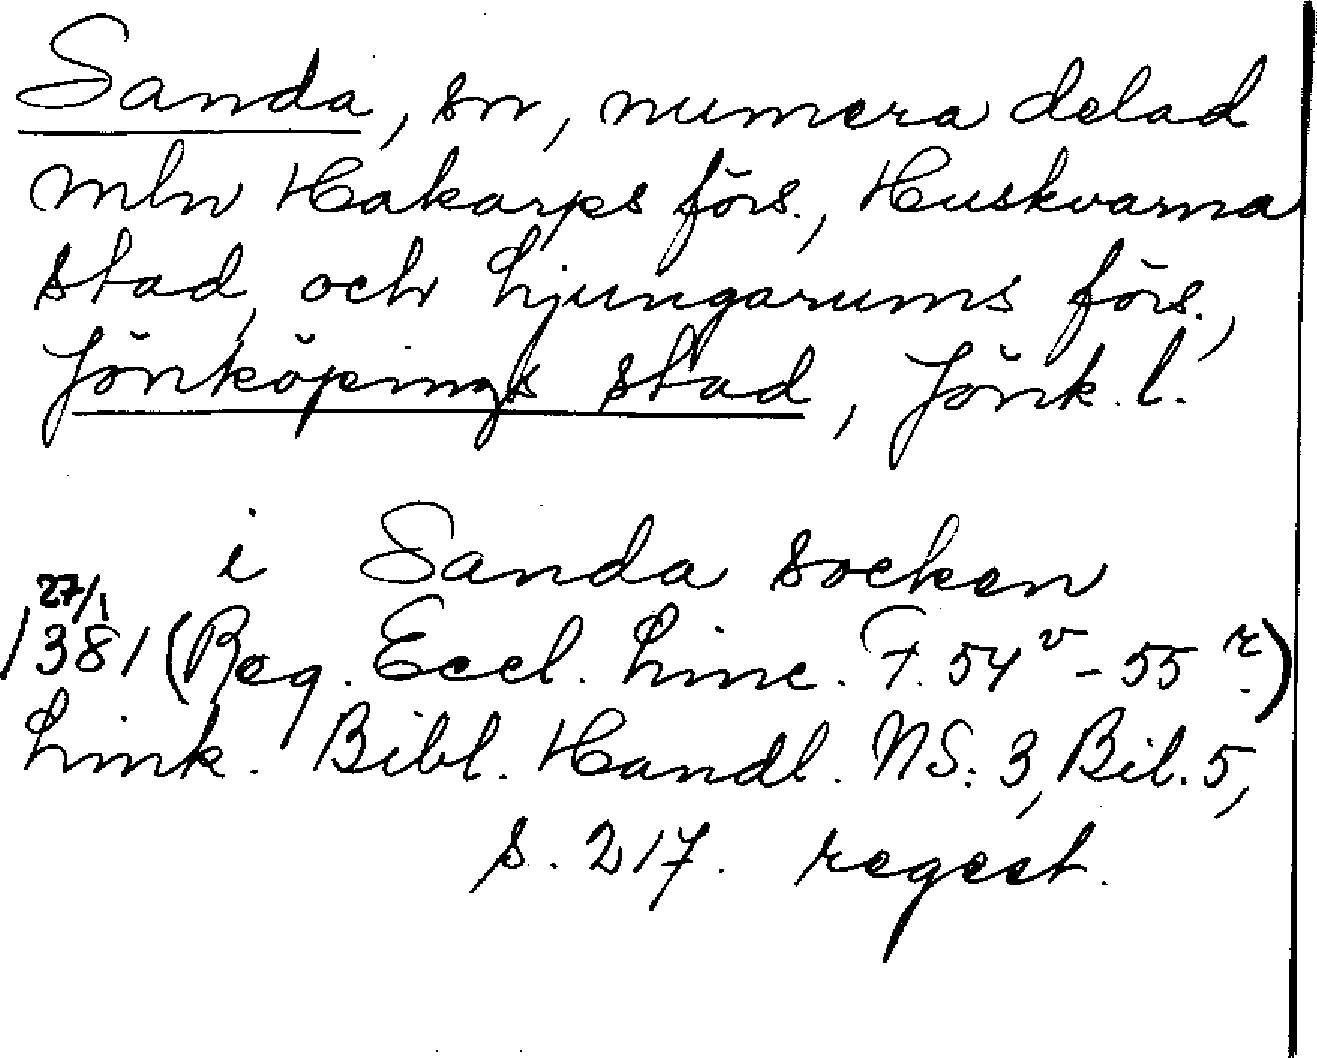 Sanda, sn, numera delad
mln Hakarps förs., Huskvarna
stad, och Ljungarums förs.,
Jönköpings stad, Jönk. l.
i Sanda socken
27/1
1381 (Reg. Eccl. Linc. F. 54v - 55r.)
Link. Bibl. Handl. NS: 3, Bil. 5,
s. 217. regest.